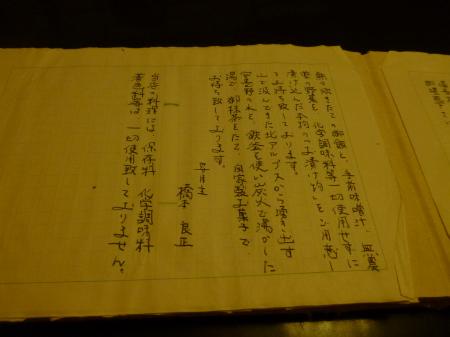 無の炊きたての御飯と、手前味噌汁、無農
薬の野菜を、化学調味料等一切使用せずに
漬け込んだ本物のお漬け物をご用意し
お待ち致しております。
北アルプスから湧き出す
安曇野の水を、鉄釜を使い炭火で湯かした
湯で、御抹茶をたて、自家製お菓子で
お待ち致しております。
橋本 良正
当店の料理には、保存料 化学調味料
着色料等は、一切使用致しておりません。